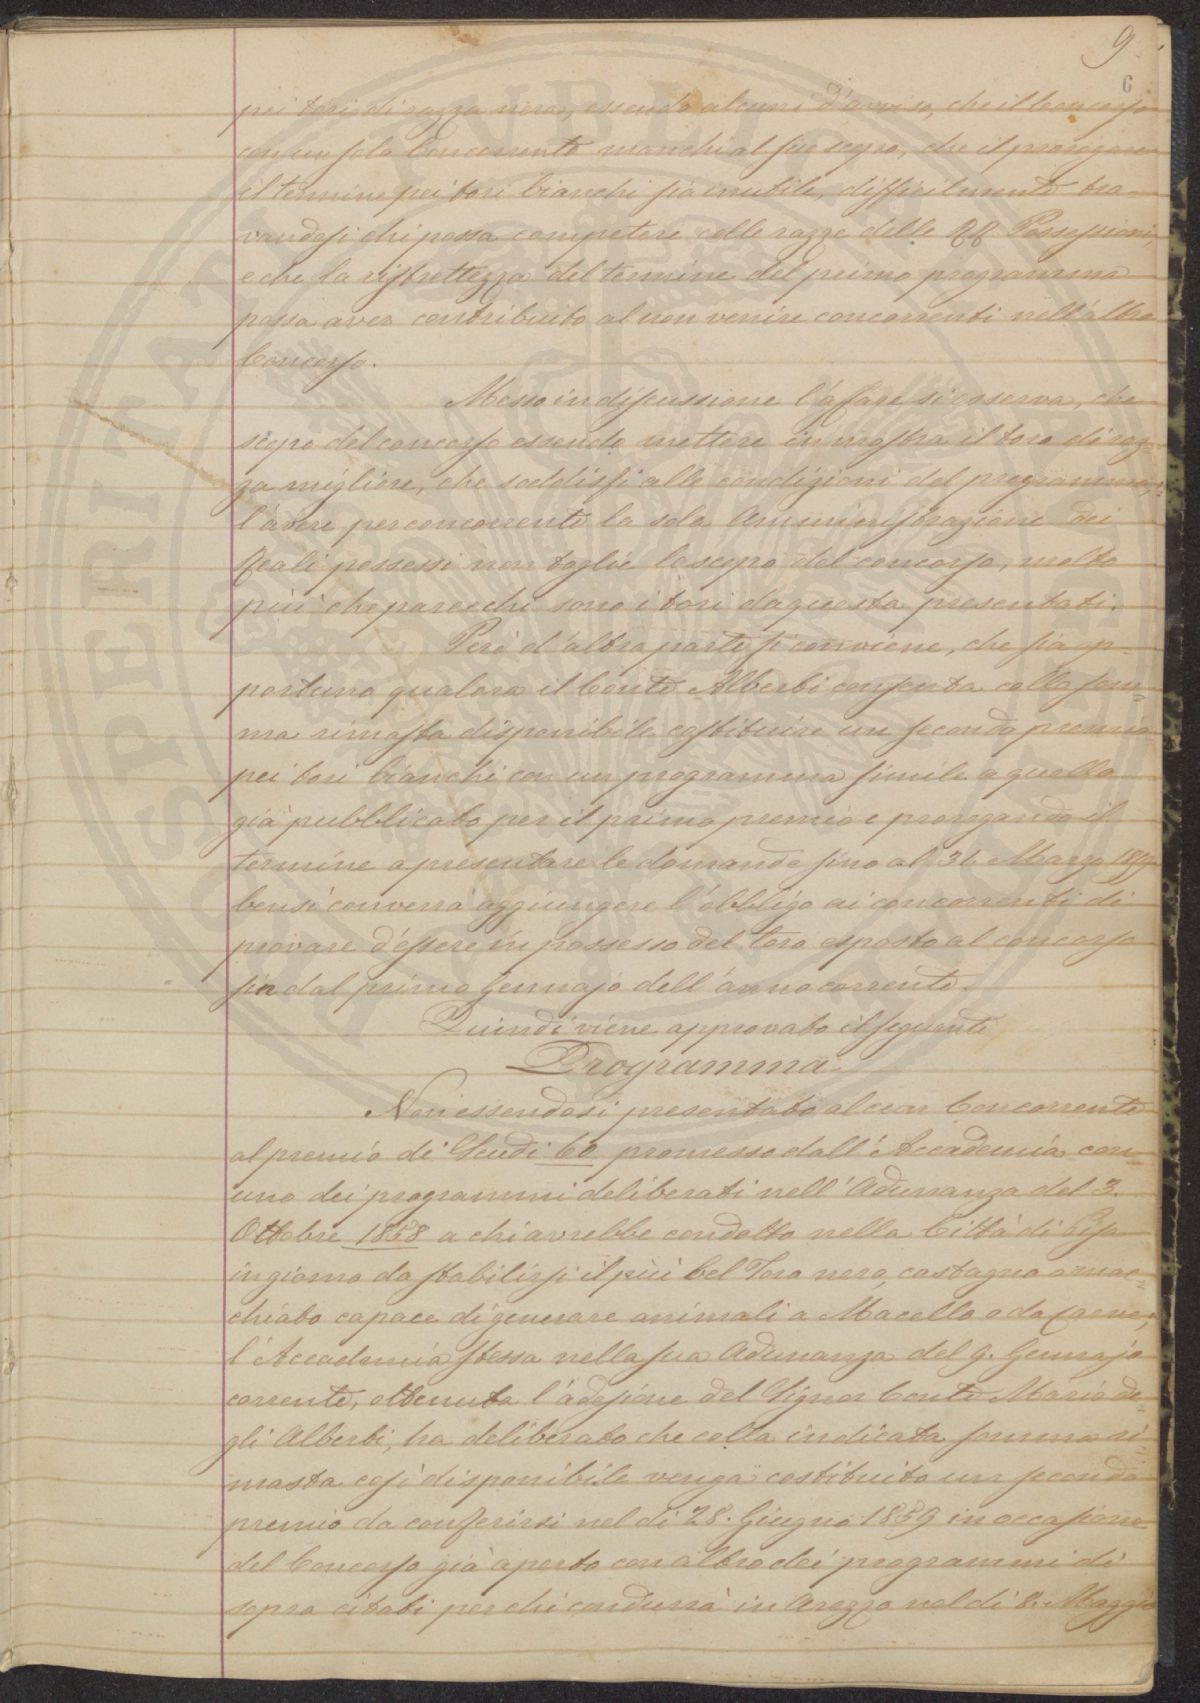 9.
6
pei tori di razza nera, essendo alcuni d'avviso, che il Concorso
con un solo Concorrente manchi al suo scopo, che il prorogare
il termine pei tori bianchi sia inutile, difficilmente tro-
vandosi chi possa competere colle razze delle RR Possessioni,
e che la ristrettezza del termine del primo programma
possa aver contribuito al non venire concorrenti nell'altro
Concorso.
Messo in discussione l'affare si osserva, che
scopo del concorso essendo mettere in mostra il toro di raz-
za migliore, che soddisfi alle condizioni del programma,
l'avere per concorrente la sola Amministrazione dei
Reali possessi non toglie lo scopo del concorso, molto
più che parecchi sono i tori da questa presentati.
Però d'altra parte si conviene, che sia op-
portuno qualora il Conte Alberti consenta colla som-
ma rimasta disponibile costituire un secondo premio
pei tori bianchi con un programma simile a quello
già pubblicato per il primo premio e prorogando il
termine a presentare le domande fino al 31. Marzo 1859
bensì converrà aggiungere l'obbligo ai concorrenti di
provare d'essere in possesso del toro esposto al concorso
sin dal primo Gennajo dell'anno corrente.
Quindi viene approvato il seguente
Programma
Non essendosi presentato alcun Concorrente
al premio di Scudi 60 promesso dall'Accademia con
uno dei programmi deliberati nell'Adunanza del 3.
Ottobre 1858 a chi avrebbe condotto nella Città di Pisa
in giorno da stabilirsi il più bel Toro nero, castagno o mac-
chiato capace di generare animali a Macello o da Carne,
l'Accademia stessa nella sua Adunanza del 9. Gennajo
corrente, ottenuta l'adesione del Signor Conte Mario de-
gli Alberti, ha deliberato che colla indicata somma ri-
masta così disponibile venga costituito un secondo
premio da conferirsi nel dì 28. Giugno 1859 in occasione
del Concorso già aperto con altro dei programmi di
sopra citati per chi condurrà in Arezzo nel dì 8. Maggio